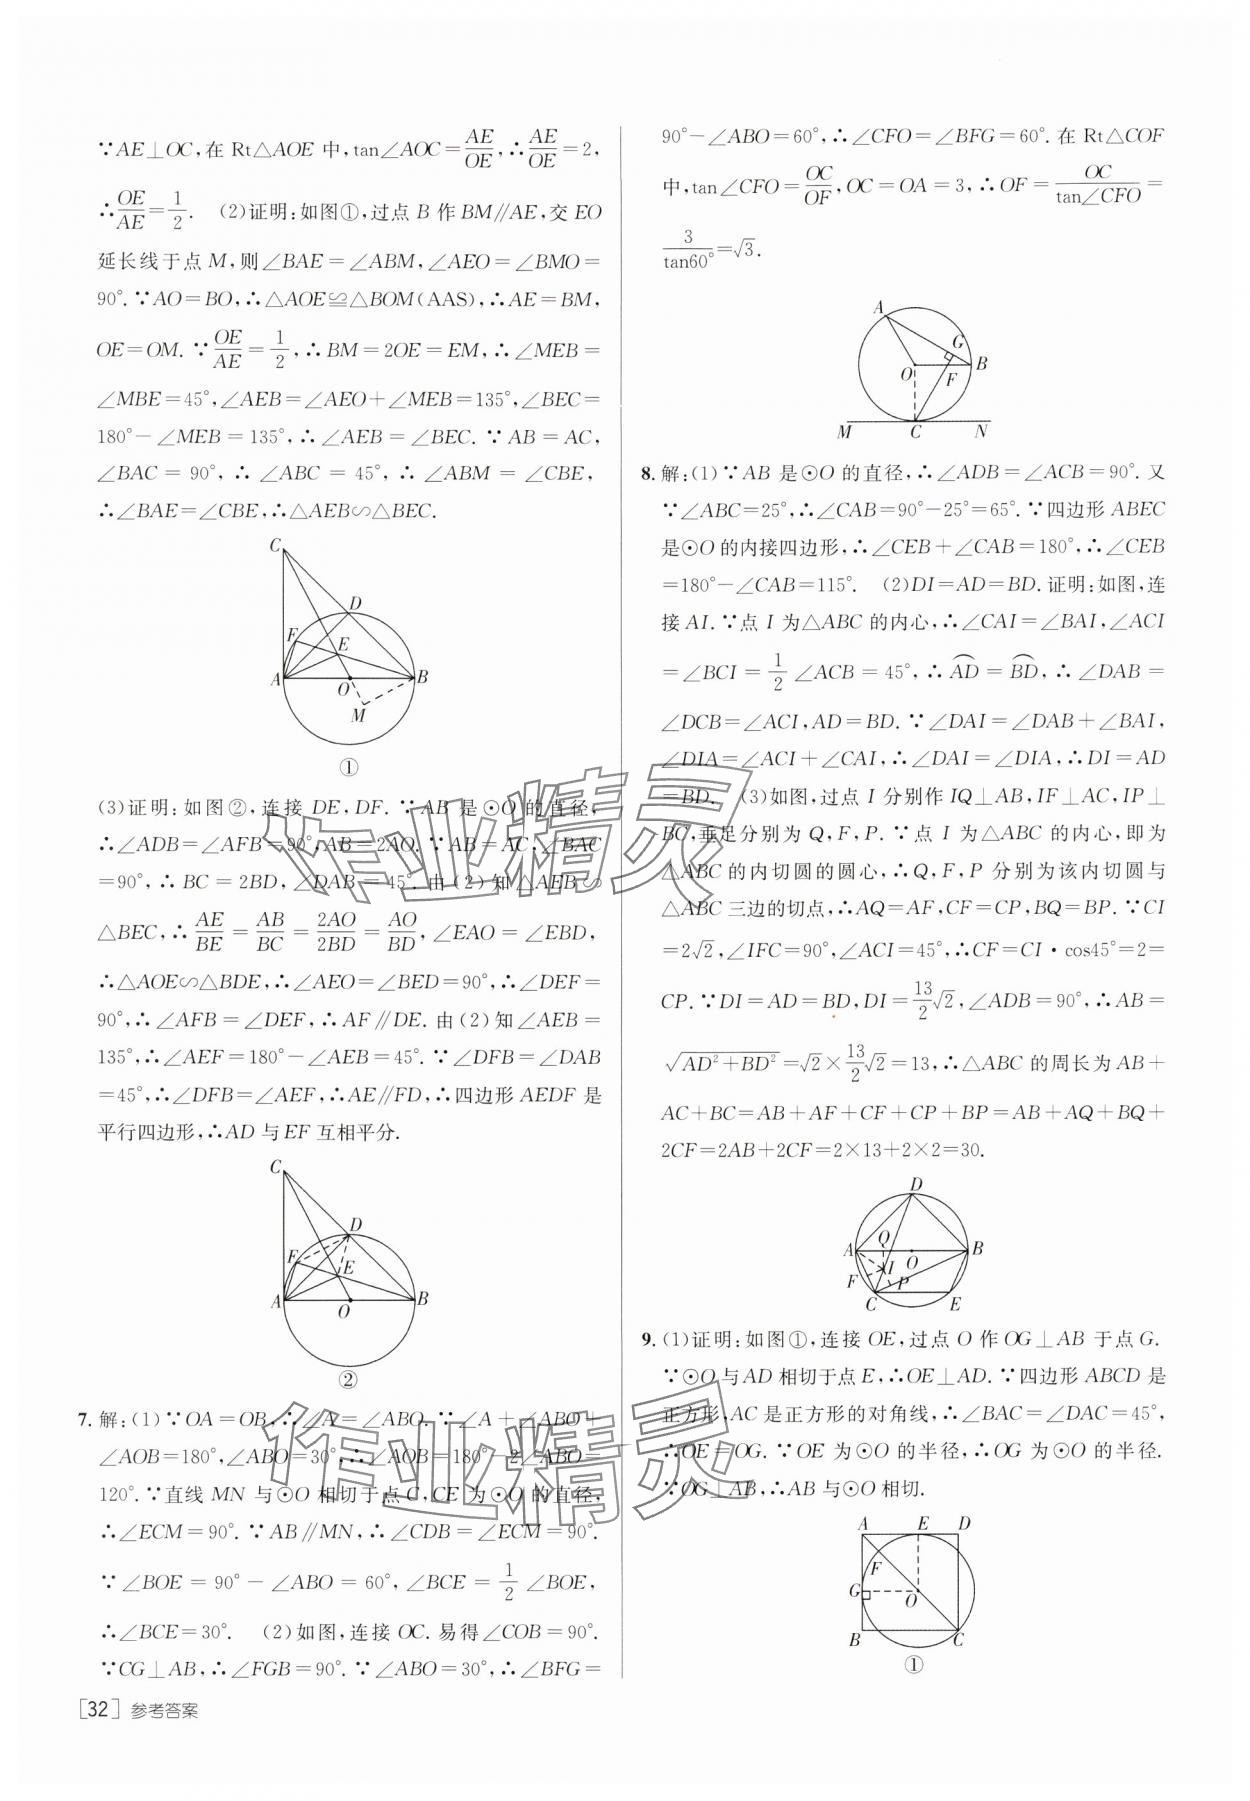 ∵AE⊥OC,在 Rt△AOE 中,tan∠AOC=AE/OE,∴AE/OE=2,
∴OE/AE=1/2. (2)证明:如图①,过点 B 作 BM∥AE,交 EO
延长线于点 M,则∠BAE=∠ABM,∠AEO=∠BMO=
90°.∵AO=BO,∴△AOE≌△BOM(AAS),∴AE=BM,
OE=OM.∵OE/AE=1/2,∴BM=2OE=EM,∴∠MEB=
∠MBE=45°,∠AEB=∠AEO+∠MEB=135°,∠BEC=
180°-∠MEB=135°,∴∠AEB=∠BEC.∵AB=AC,
∠BAC=90°,∴∠ABC=45°,∴∠ABM=∠CBE,
∴∠BAE=∠CBE,∴△AEB∽△BEC.
C
D
F
E
A
O
B
M
①
(3)证明:如图②,连接 DE,DF.∵AB 是⊙O 的直径,
∴∠ADB=∠AFB=90°,AB=2AO.∵AB=AC,∠BAC
=90°,∴BC=2BD,∠DAB=45°.由(2)知△AEB∽
△BEC,∴AE/BE=AB/BC=2AO/2BD=AO/BD,∠EAO=∠EBD,
∴△AOE∽△BDE,∴∠AEO=∠BED=90°,∴∠DEF=
90°,∴∠AFB=∠DEF,∴AF∥DE.由(2)知∠AEB=
135°,∴∠AEF=180°-∠AEB=45°.∵∠DFB=∠DAB
=45°,∴∠DFB=∠AEF,∴AE∥FD,∴四边形 AEDF 是
平行四边形,∴AD 与 EF 互相平分.
C
D
F
E
A
O
B
②
7. 解:(1)∵OA=OB,∴∠A=∠ABO.∵∠A+∠ABO+
∠AOB=180°,∠ABO=30°,∴∠AOB=180°-2∠ABO=
120°.∵直线 MN 与⊙O 相切于点 C,CE 为⊙O 的直径,
∴∠ECM=90°.∵AB∥MN,∴∠CDB=∠ECM=90°.
∵∠BOE=90°-∠ABO=60°,∠BCE=1/2∠BOE,
∴∠BCE=30°. (2)如图,连接 OC.易得∠COB=90°.
∵CG⊥AB,∴∠FGB=90°.∵∠ABO=30°,∴∠BFG=
[32] 参考答案
90°-∠ABO=60°,∴∠CFO=∠BFG=60°.在 Rt△COF
中,tan∠CFO=OC/OF,OC=OA=3,∴OF=OC/tan∠CFO=
3/tan60°=√3.
A
G
B
O
F
M
C
N
8. 解:(1)∵AB 是⊙O 的直径,∴∠ADB=∠ACB=90°.又
∵∠ABC=25°,∴∠CAB=90°-25°=65°.∵四边形 ABEC
是⊙O 的内接四边形,∴∠CEB+∠CAB=180°,∴∠CEB
=180°-∠CAB=115°. (2)DI=AD=BD.证明:如图,连
接 AI.∵点 I 为△ABC 的内心,∴∠CAI=∠BAI,∠ACI
=∠BCI=1/2∠ACB=45°,∴⌒AD=⌒BD,∴∠DAB=
∠DCB=∠ACI,AD=BD.∵∠DAI=∠DAB+∠BAI,
∠DIA=∠ACI+∠CAI,∴∠DAI=∠DIA,∴DI=AD
=BD. (3)如图,过点 I 分别作 IQ⊥AB,IF⊥AC,IP⊥
BC,垂足分别为 Q,F,P.∵点 I 为△ABC 的内心,即为
△ABC 的内切圆的圆心,∴Q,F,P 分别为该内切圆与
△ABC 三边的切点,∴AQ=AF,CF=CP,BQ=BP.∵CI
=2√2,∠IFC=90°,∠ACI=45°,∴CF=CI·cos45°=2=
CP.∵DI=AD=BD,DI=13/2√2,∠ADB=90°,∴AB=
√(AD²+BD²)=√2×13/2√2=13,∴△ABC 的周长为 AB+
AC+BC=AB+AF+CF+CP+BP=AB+AQ+BQ+
2CF=2AB+2CF=2×13+2×2=30.
D
A
Q
O
B
I
F
P
C
E
9. (1)证明:如图①,连接 OE,过点 O 作 OG⊥AB 于点 G.
∵⊙O 与 AD 相切于点 E,∴OE⊥AD.∵四边形 ABCD 是
正方形,AC 是正方形的对角线,∴∠BAC=∠DAC=45°,
∴OE=OG.∵OE 为⊙O 的半径,∴OG 为⊙O 的半径.
∵OG⊥AB,∴AB 与⊙O 相切.
A
E
D
F
G
O
B
C
①
作业精灵
作业精灵